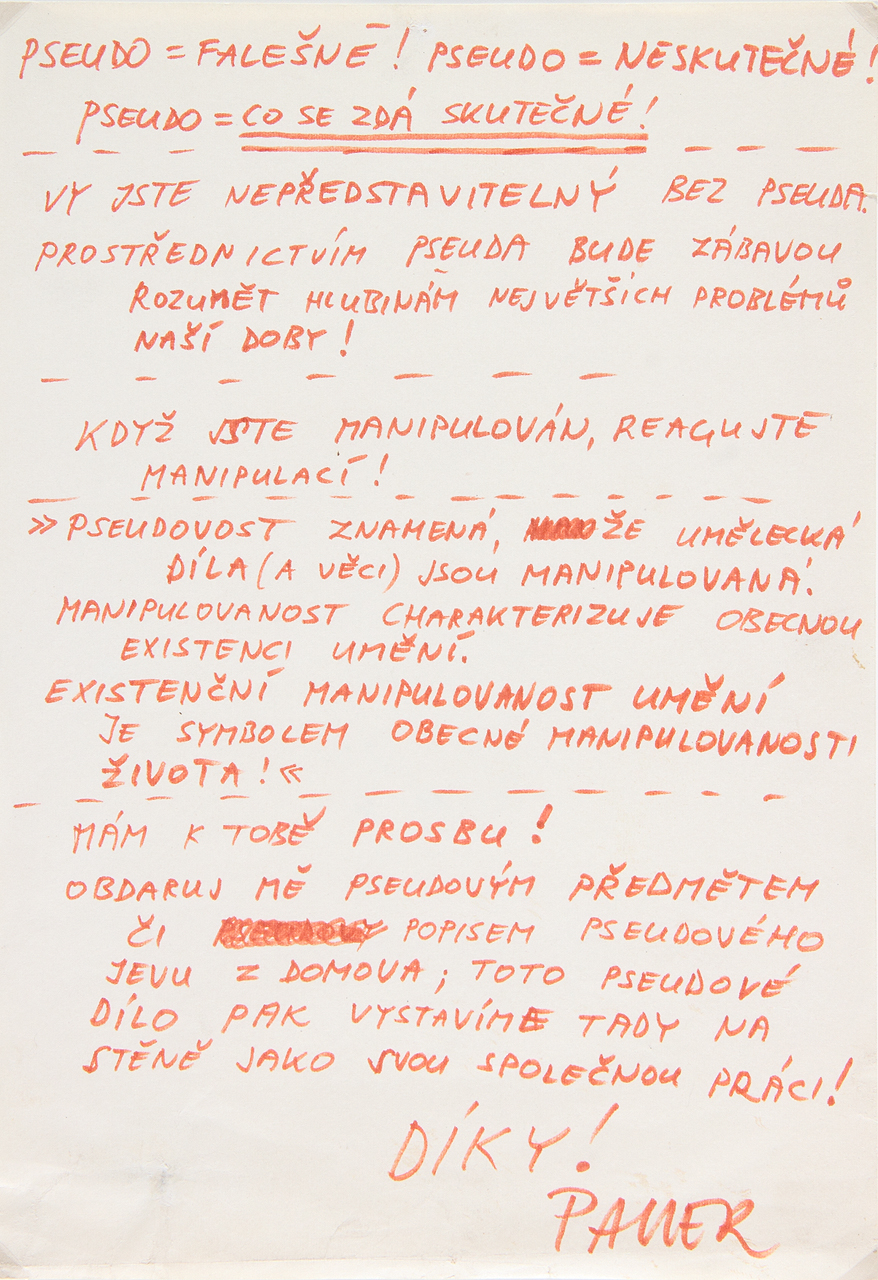 PSEUDO = FALEŠNÉ! PSEUDO = NESKUTEČNÉ!
PSEUDO = CO SE ZDÁ SKUTEČNÉ!
VY JSTE NEPŘEDSTAVITELNÝ BEZ PSEUDA.
PROSTŘEDNICTVÍM PSEUDA BUDE ZÁBAVOU
ROZUMĚT HLUBINÁM NEJVĚTŠÍCH PROBLÉMŮ
NAŠÍ DOBY!
KDYŽ JSTE MANIPULOVÁN, REAGUJTE
MANIPULACÍ!
»PSEUDOVOST ZNAMENÁ, ŽE UMĚLECKÁ
DÍLA (A VĚCI) JSOU MANIPULOVANÁ.
MANIPULOVANOST CHARAKTERIZUJE OBECNOU
EXISTENCI UMĚNÍ.
EXISTENČNÍ MANIPULOVANOST UMĚNÍ
JE SYMBOLEM OBECNÉ MANIPULOVANOSTI
ŽIVOTA!«
MÁM K TOBĚ PROSBU!
OBDARUJ MĚ PSEUDOVÝM PŘEDMĚTEM
ČI POPISEM PSEUDOVÉHO
JEVU Z DOMOVA; TOTO PSEUDOVÉ
DÍLO PAK VYSTAVÍME TADY NA
STĚNĚ JAKO SVOU SPOLEČNOU PRÁCI!
DÍKY!
PAUER